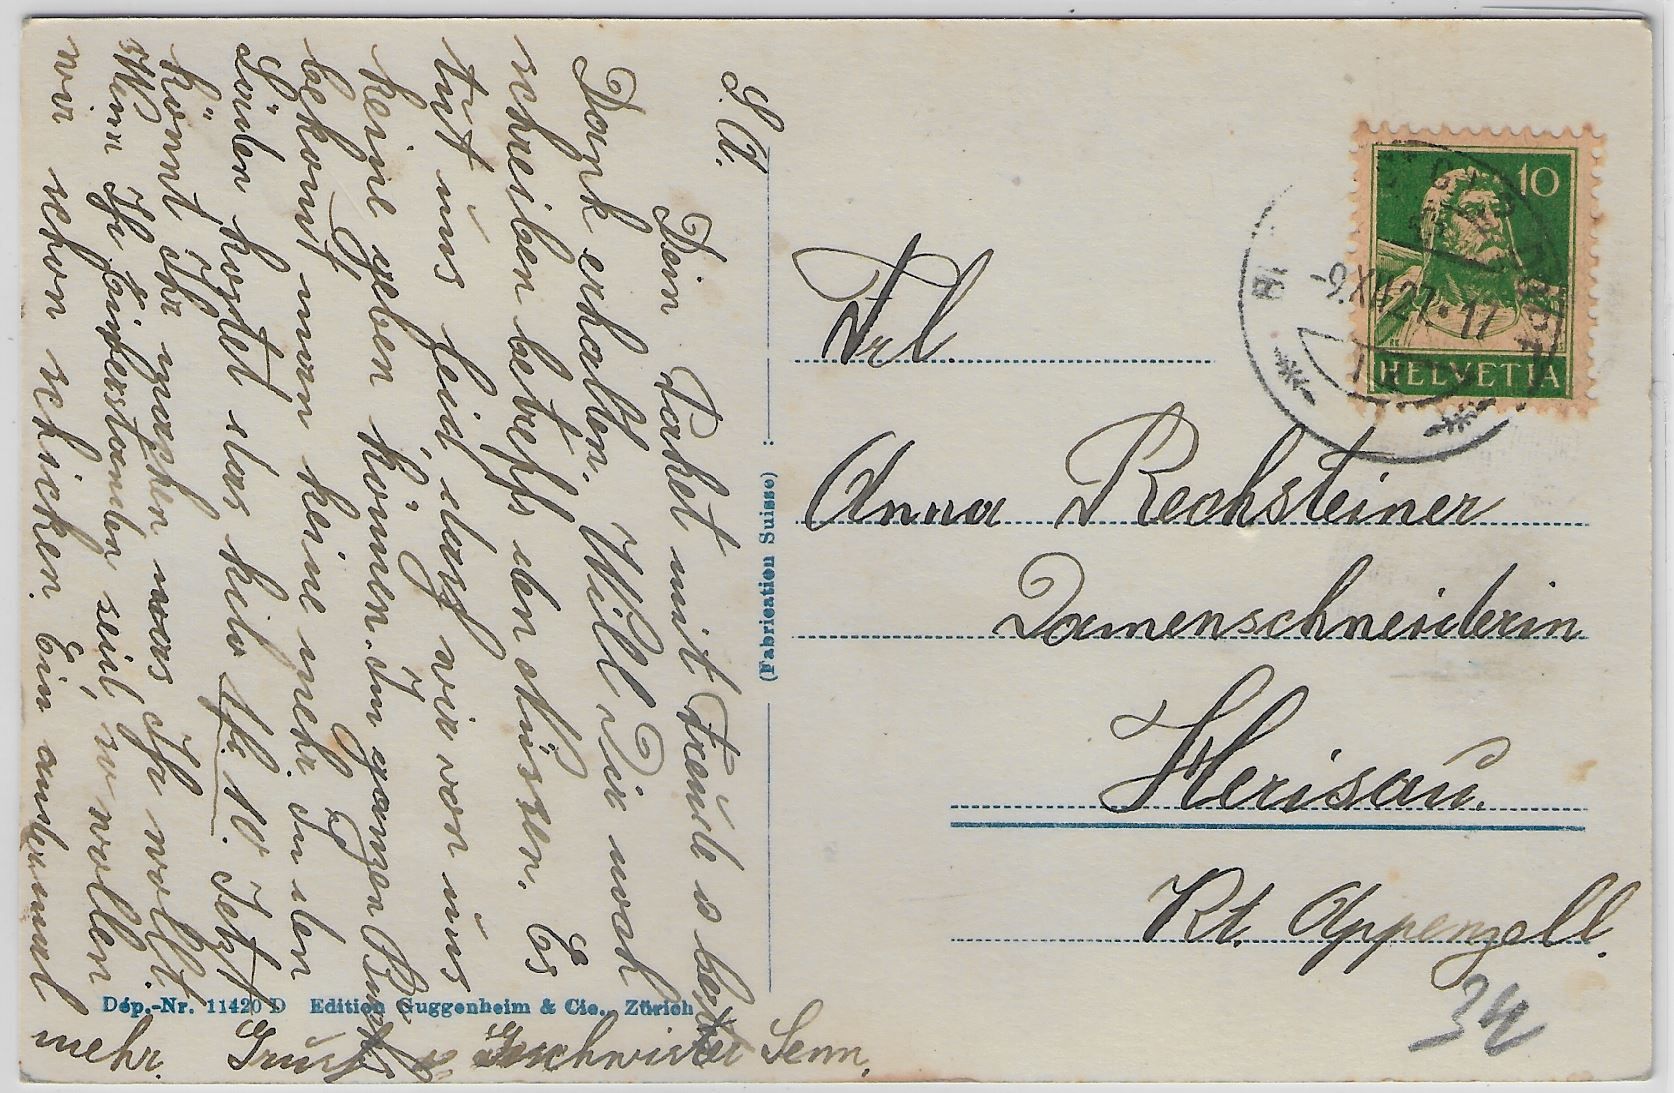 S.A.
Dein Paket mit Freude & besten
Dank erhalten. Will Dir noch
schreiben betreffs den Nüssen. Es
tut uns leid, dass wir von uns
keine geben können. Im ganzen
bekomt man keine mehr. In den
Läden kostet das kilo fr. 10. Jetzt
könnt Ihr machen was Ihr wollt.
Wenn Ihr Einverstanden seid, so wollen
wir schon schicken. Ein andermal
mehr. Gruss Geschwister Senn.
(Fabrication Suisse)
Dép.-Nr. 11420 D Edition Guggenheim & Cie., Zürich
10
HELVETIA
-9.XII.27.-17
Frl.
Anna Rechsteiner
Damenschneiderin
Herisau.
Kt. Appenzell.